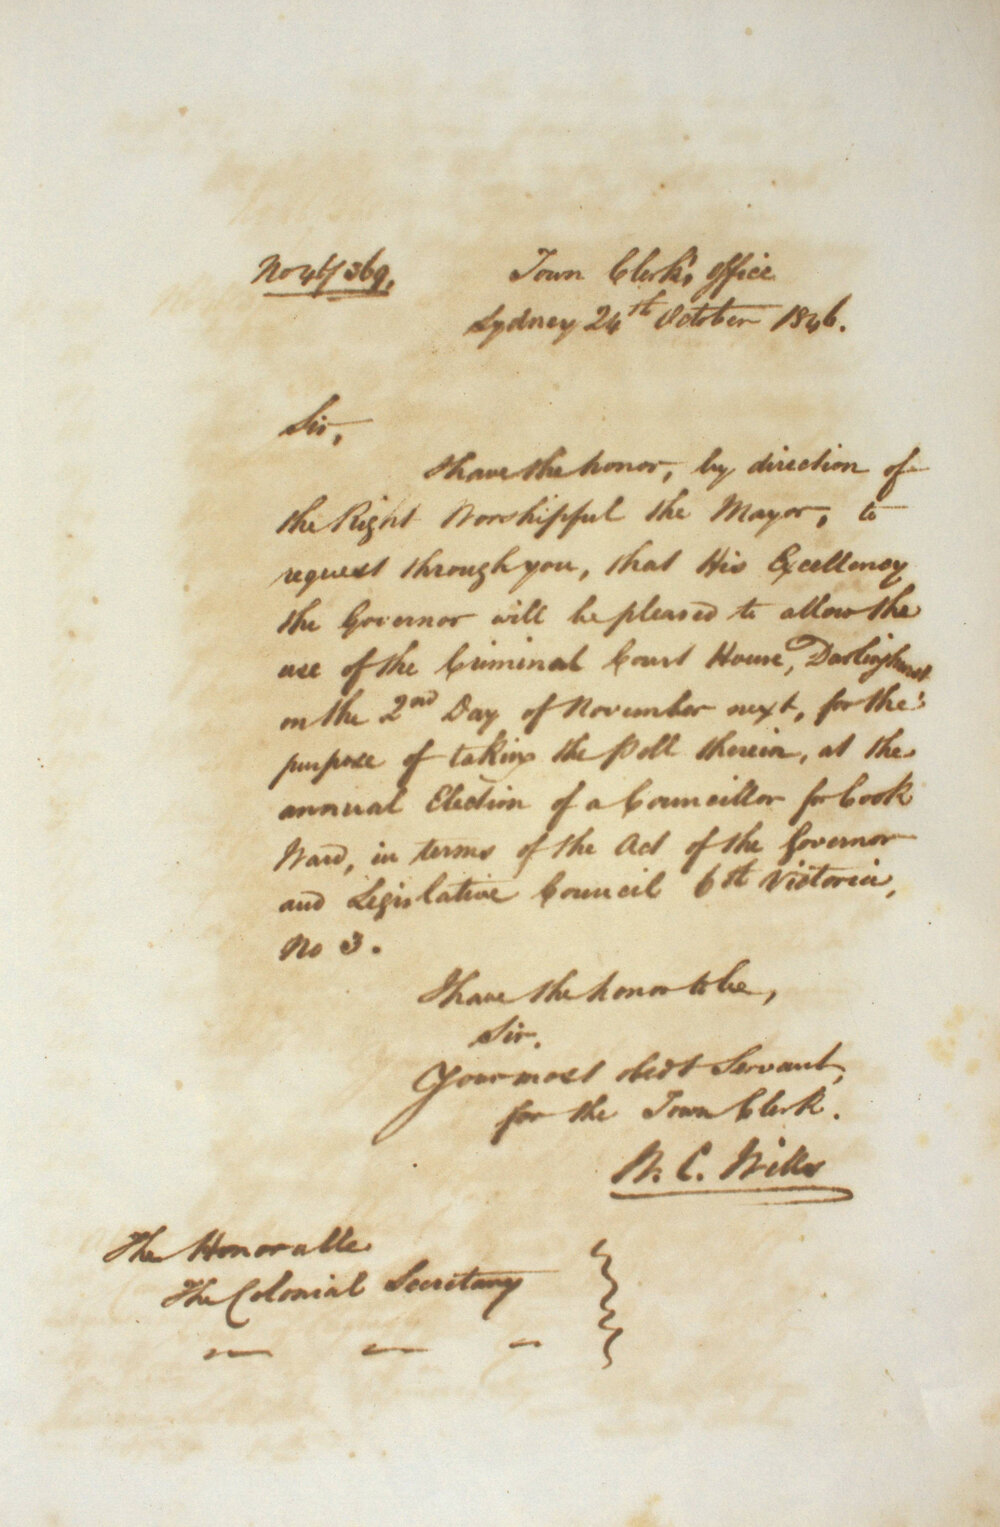 No 46/369.
Town Clerk's Office
Sydney 24th October 1846.
Sir,
I have the honor, by direction of
the Right Worshipful the Mayor, to
request through you, that His Excellency
the Governor will be pleased to allow the
use of the Criminal Court House, Darlinghurst
on the 2nd Day of November next, for the
purpose of taking the Poll therein, at the
annual Election of a Councillor for Cook
Ward, in terms of the Act of the Governor
and Legislative Council 6th Victoria,
No 3.
I have the honor to be,
Sir,
Your most obedt Servant,
for the Town Clerk.
W. C. Wills
The Honorable
The Colonial Secretary